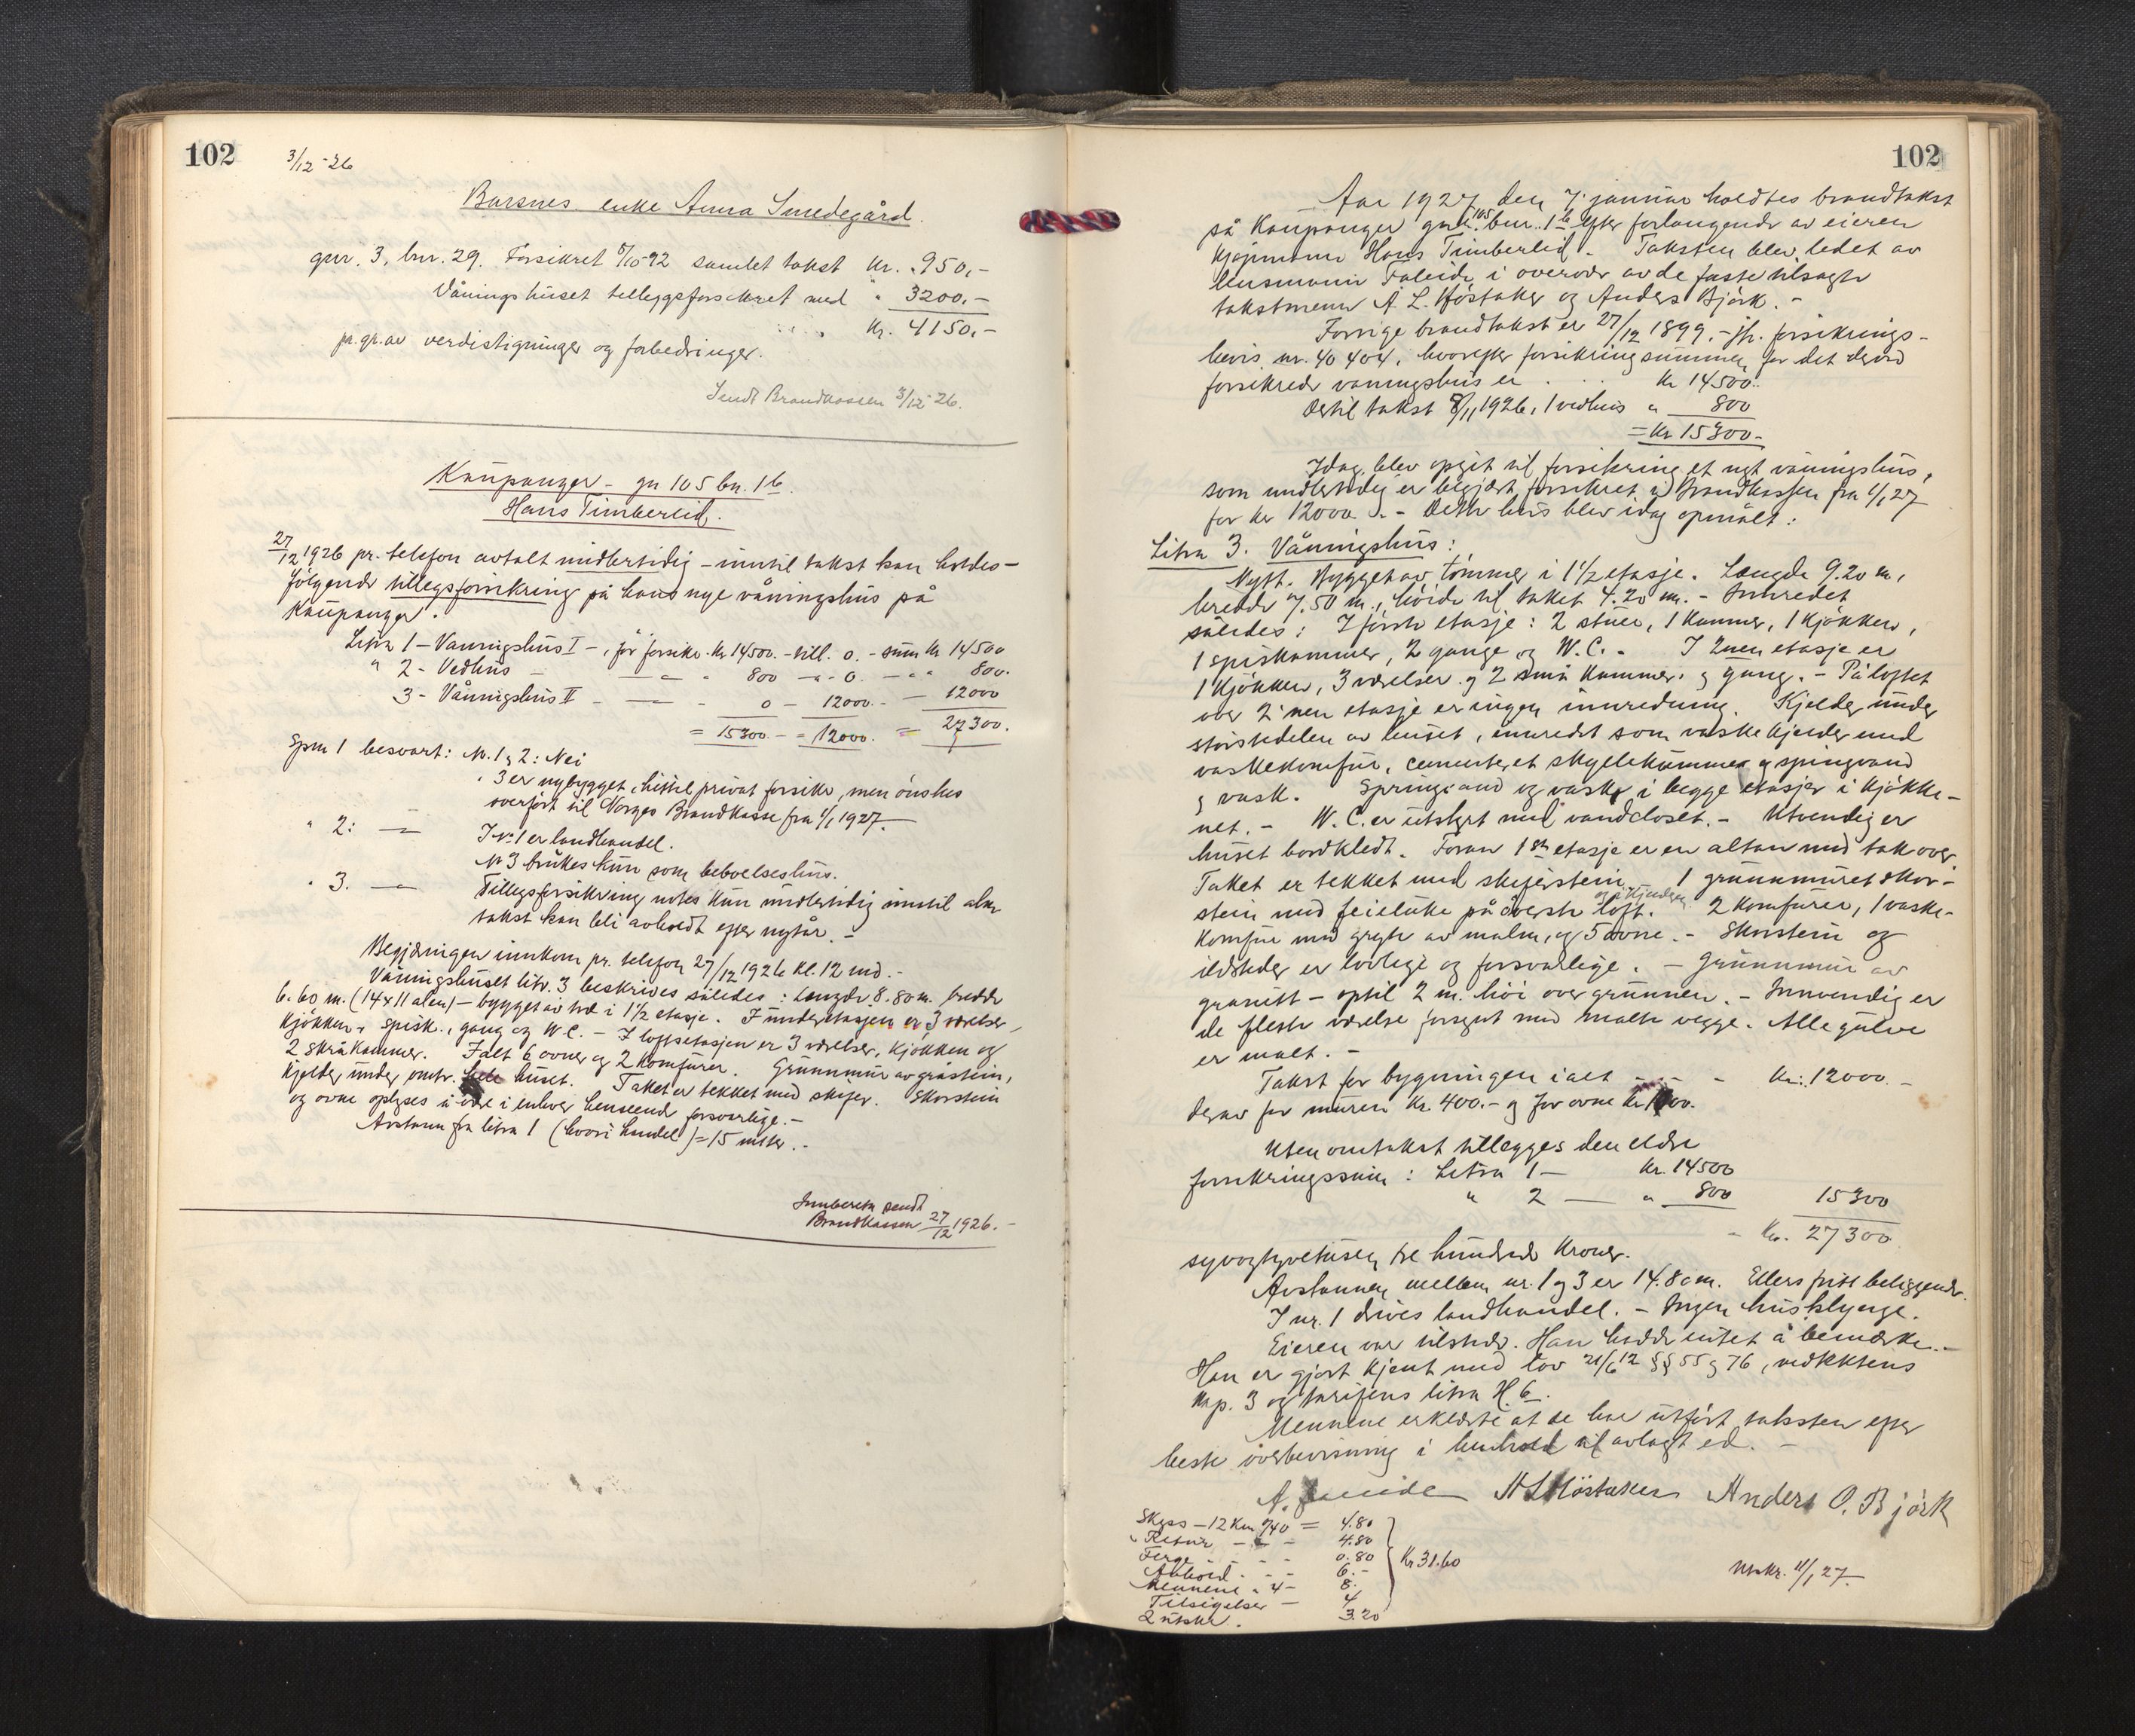 102
3/12-26
Barsnes enke Anna Smedegård.
gnr. 3, bnr. 29. Forsikret 8/10-92 samlet takst kr. 950,-
Våningshuset tilleggsforsikret med " 3200,-
kr. 4150,-
pr.gr.av verdistigninger og forbedringer.
Sendt Brandkassen 3/12-26.
Kaupanger - gn 105 bn. 1b.
Hans Timberlid.
27/12 1926 pr. telefon avtalt midlertidig - inntil takst kan holdes -
følgende tillegsforsikring på hans nye våningshus på
Kaupanger.
Litra 1 - Vaningshus I - , før forsikr. kr 14500. - till. 0. - sum kr 14500
" 2 - Vedhus - " 800 - " 0. - " " 800.
3 - Våningshus II - 0 - 12000.- - 12000
= 15300 - = 12000. = 27300.
Spm 1 besvart: Nr. 1 g 2: Nei
" 3 er nybygget, hittil privat forsikr, men ønskes
overført til Norges Brandkasse fra 1/1 1927.
" 2: I Nr. 1 er landhandel.
Nr 3 brukes kun som beboelseshus.
" 3. Tillegsforsikring notes kun midlertidig inntil alm
takst kan bli avholdt efter nytår. -
Begjæringen innkom pr. telefon 27/12 1926 kl. 12 md. -
Våningshuset litr. 3 beskrives således: Længde 8.80 m. bredde
6.60 m. (14 x 11 alen) - bygget av træ i 1 1/2 etasje. I underetasjen er 3 værelser,
kjøkken, spisk., gang og W.C. - I loftsetasjen er 3 værelser, kjøkken og
2 skråkammer. Ialt 6 ovner og 2 komfurer. Grunnmur av gråstein,
kjelder under omtr. hele huset. Taket er tekket med skifer. Skorstein
og ovne oplyses å være i enhver henseende forsvarlige. -
Avstann fra litra 1 (hvori handel) = 15 meter. -
Innberetn sendt
Brandkassen 27/12 1926. -
102
Aar 1927 den 7. januar holdtes brandtakst
på Kaupanger gnr. 105 bnr. 1b efter forlangende av eieren
kjøpmann Hans Timberlid. Taksten blev ledet av
lensmann Faleide i overvær av de faste tilsagte
takstmenn A. L. Høstaker og Anders Bjørk. -
Forrige brandtakst er 27/12 1899, - jfr. forsikrings-
bevis nr. 40404, hvorefter forsikringsummen for det derved
forsikrede vaningshus er . . . kr 14500.
Dertil takst 8/11 1926, 1 vedhus " 800
= kr 15300-
Idag blev opgit til forsikring et nyt våningshus,
som midlertidig er begjært forsikret i Brandkassen fra 1/1 27
for kr 12000. - Dette hus blev idag opmålt:
Litra 3. Våningshus:
Nytt. Bygget av tømmer i 1 1/2 etasje. Længde 9.20 m,
bredde 7.50 m., høide til taket 4.20 m. - Innredet
således: I første etasje: 2 stuer, 1 kammer, 1 kjøkken,
1 spiskammer, 2 gange og W.C. - I 2nen etasje er
1 kjøkken, 3 værelser g 2 små kammer g gang. - På loftet
over 2'nen etasje er ingen innredning. Kjelder under
størstedelen av huset, innredet som vaskekjelder med
vaskekomfur, cementeret skyllekummer g springvand
g vask. Springvand og vask i begge etasjer i kjøkke-
net. - W.C. er utstyrt med vandcloset. - Utvendig er
huset bordkledt. Foran 1ste etasje er en altan med tak over.
Taket er tekket med skiferstein. 1 grunnmuret skor-
stein med feieluke på øverste loft. og i kjelderen 2 komfurer, 1 vaske-
komfur med gryte av malm, og 5 ovne. - Skorstein og
ildsteder er lovlige og forsvarlige. - Grunnmur av
granitt - optil 2 m. høi over grunnen. - Innvendig er
de fleste værelse forsynt med malte vegge. Alle gulve
er malt. -
Takst for bygningen ialt - - - kr. 12000. -
derav for muren kr. 400.- g for ovne kr 1 00.
Uten omtakst tillegges den eldre
forsikringssum: Litra 1 - kr. 14500
" 2 - " 800 15300
- kr. 27300
syvogtyvetusen tre hundrede kroner.
Avstannen mellem nr. 1 g 3 er 14.80 m. Ellers fritt beliggende.
I nr. 1 drives landhandel. - Ingen husklynge.
Eieren var tilstede. Han hadde intet å bemerke. -
Han er gjort kjent med lov 21/6 12 §§ 55 g 76, vedtektens
kap. 3 og tariffens litra H. 6.
Mennene erklærte at de har utført taksten efter
beste overbevisning i henhold til avlagt ed. -
A. Faleide A L Høstaker Anders O. Bjørk
Skyss - 12 km á/40 = 4.80
" Retur - - - 4.80
Ferge - - - 0.80
Avhold - - 6.-
Mennene " 4 - 8.
Tilsigelser - 4
2 utskr. 3.20
Kr 31.60
Utskr. 11/1 27.